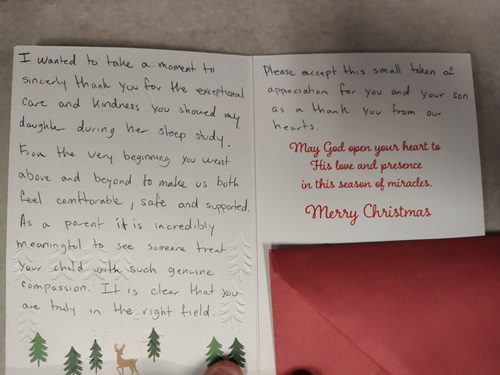 I wanted to take a moment to
sincerly thank you for the exceptional
care and kindness you showed my
daughter during her sleep study.
From the very beginning you went
above and beyond to make us both
feel comftorable, safe and supported.
As a parent it is incredibly
meaningful to see someone treat
your child with such genuine
compassion. It is clear that you
are truly in the right field.
Please accept this small token of
appreciation for you and your son,
as a thank you from our
hearts.
May God open your heart to
His love and presence
in this season of miracles.
Merry Christmas